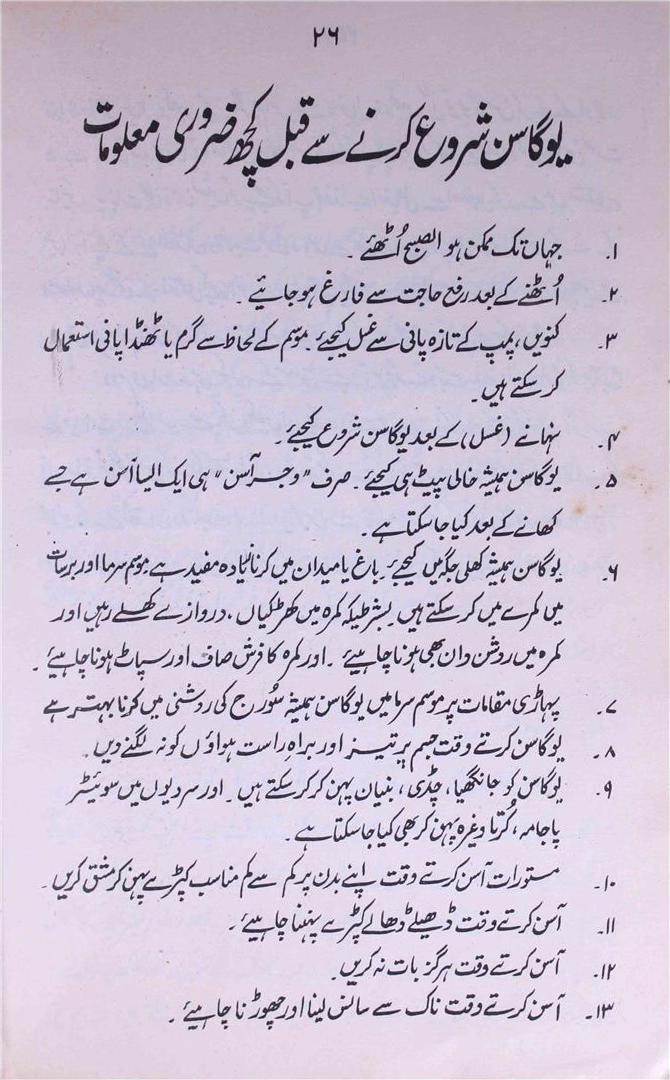 ۲۶
یوگاسن شروع کرنے سے قبل کچھ ضروری معلومات
۱۔ جہاں تک ممکن ہو الصبح اُٹھئے ۔
۲۔ اُٹھنے کے بعد رفع حاجت سے فارغ ہو جائیے ۔
۳۔ کنویں، پمپ کے تازہ پانی سے غسل کیجئے۔ موسم کے لحاظ سے گرم یا ٹھنڈا پانی استعمال
کر سکتے ہیں۔
۴۔ نہانے (غسل) کے بعد یوگاسن شروع کیجئے ۔
۵۔ یوگاسن ہمیشہ خالی پیٹ ہی کیجئے۔ صرف "وجر آسن" ہی ایک ایسا آسن ہے جسے
کھانے کے بعد کیا جا سکتا ہے۔
۶۔ یوگاسن ہمیشہ کھلی جگہ میں کیجئے۔ باغ یا میدان میں کرنا زیادہ مفید ہے۔ موسم سرما اور برسات
میں کمرے میں کر سکتے ہیں۔ بشرطیکہ کمرہ میں کھڑکیاں، دروازے کھلے رہیں اور
کمرہ میں روشن دان بھی ہونا چاہیئے ۔ اور کمرہ کا فرش صاف اور سپاٹ ہونا چاہیئے ۔
۷۔ پہاڑی مقامات پر موسم سرما میں یوگاسن ہمیشہ سُورج کی روشنی میں کرنا بہتر ہے
۸۔ یوگاسن کرتے وقت جسم پر تیز اور براہِ راست ہواؤں کو نہ لگنے دیں۔
۹۔ یوگاسن کو جانگھیا، چڈی، بنیان پہن کر کر سکتے ہیں۔ اور سردیوں میں سوئیٹر
پاجامہ، کُرتا وغرہ پہن کر بھی کیا جا سکتا ہے۔
۱۰۔ مستورات آسن کرتے وقت اپنے بدن پر کم سے کم مناسب کپڑے پہن کر مشق کریں۔
۱۱۔ آسن کرتے وقت ڈھیلے ڈھالے کپڑے پہننا چاہیئے۔
۱۲۔ آسن کرتے وقت ہرگز بات نہ کریں۔
۱۳۔ آسن کرتے وقت ناک سے سانس لینا اور چھوڑنا چاہیئے ۔